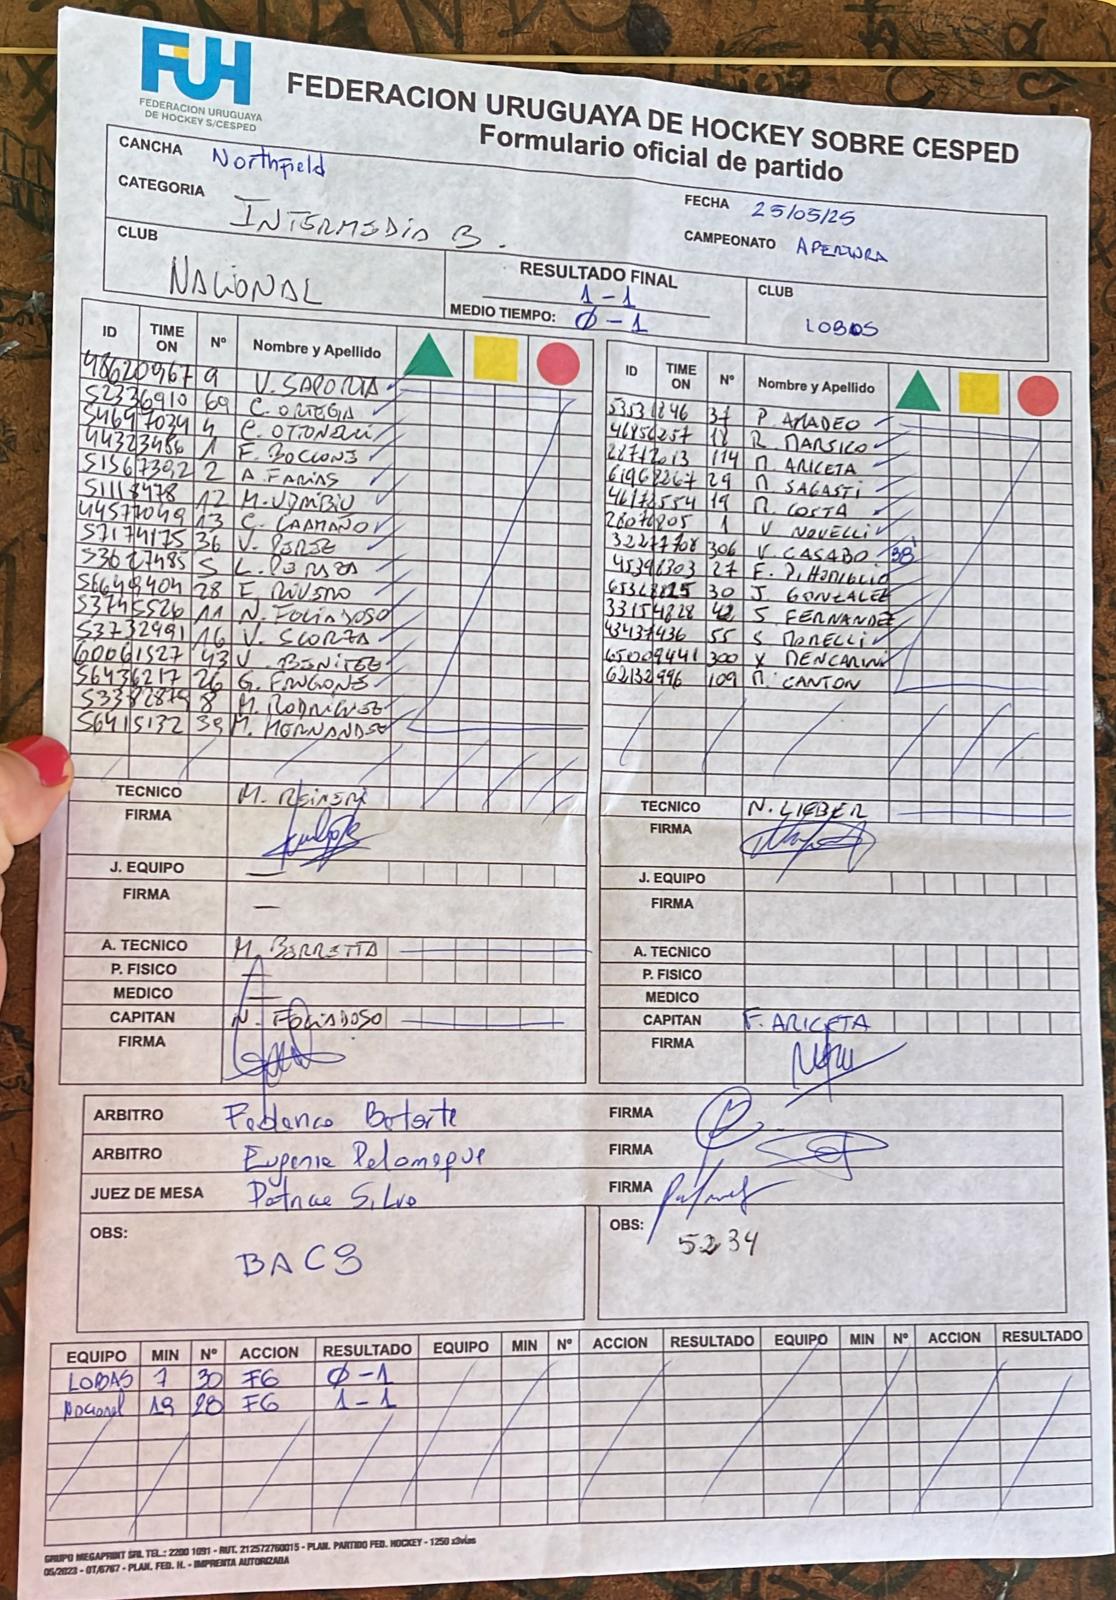 FUH
FEDERACION URUGUAYA
DE HOCKEY S/CESPED
FEDERACION URUGUAYA DE HOCKEY SOBRE CESPED
Formulario oficial de partido
CANCHA Northfield
CATEGORIA INTERMEDIA B.
FECHA 25/05/25
CAMPEONATO APERTURA
CLUB NACIONAL
RESULTADO FINAL 1-1
MEDIO TIEMPO: 0-1
CLUB LOBAS
ID TIME ON Nº Nombre y Apellido
48620967 9 V. SAPORTA
52336910 69 C. ORTEGA
54647034 4 C. OTTONELLI
44323456 1 F. BOCCONE
51567392 2 A. FARIAS
51118478 12
44577049 13 C. CAAMAÑO
57174175 36 V.
53027485 5 L.
56648404 28 F. RIVERO
53745526 11 N. FOGLIADOSO
53732991 16 V. SCORZA
60061527 43 V. BENITEZ
56436217 26 G. FRUGONE
8 M. RODRIGUEZ
56415132 39 M. HERNANDEZ
ID TIME ON Nº Nombre y Apellido
53531246 37 P. AMADEO
46856257 18 R. MARSICO
114 M. ARICETA
29 M. SAGASTI
46172554 19 M. COSTA
1 V. NOVELLI
32277708 306 V. CASABO 38'
27 F.
30 J. GONZALEZ
33154828 42 S. FERNANDEZ
43437436 55 S. MORELLI
65009441 300 X MENCARINI
62132996 109 M. CANTON
TECNICO M.
FIRMA
J. EQUIPO —
FIRMA —
A. TECNICO M. BERRETTA
P. FISICO —
MEDICO —
CAPITAN N. FOGLIADOSO
FIRMA
TECNICO N. LIEBER
FIRMA
J. EQUIPO
FIRMA
A. TECNICO
P. FISICO
MEDICO
CAPITAN F. ARICETA
FIRMA
ARBITRO Federico Botarte FIRMA
ARBITRO Eugenia Palomeque FIRMA
JUEZ DE MESA Patricia Silva FIRMA
OBS: BACS
OBS: 5234
EQUIPO MIN Nº ACCION RESULTADO EQUIPO MIN Nº ACCION RESULTADO EQUIPO MIN Nº ACCION RESULTADO
LOBAS 7 30 FG 0-1
Nacional 19 28 FG 1-1
GRUPO MEGAPRINT SRL TEL.: 2200 1091 - RUT. 212572760015 - PLAN. PARTIDO FED. HOCKEY - 1250 x3vias
05/2023 - OT/6767 - PLAN. FED. H. - IMPRENTA AUTORIZADA